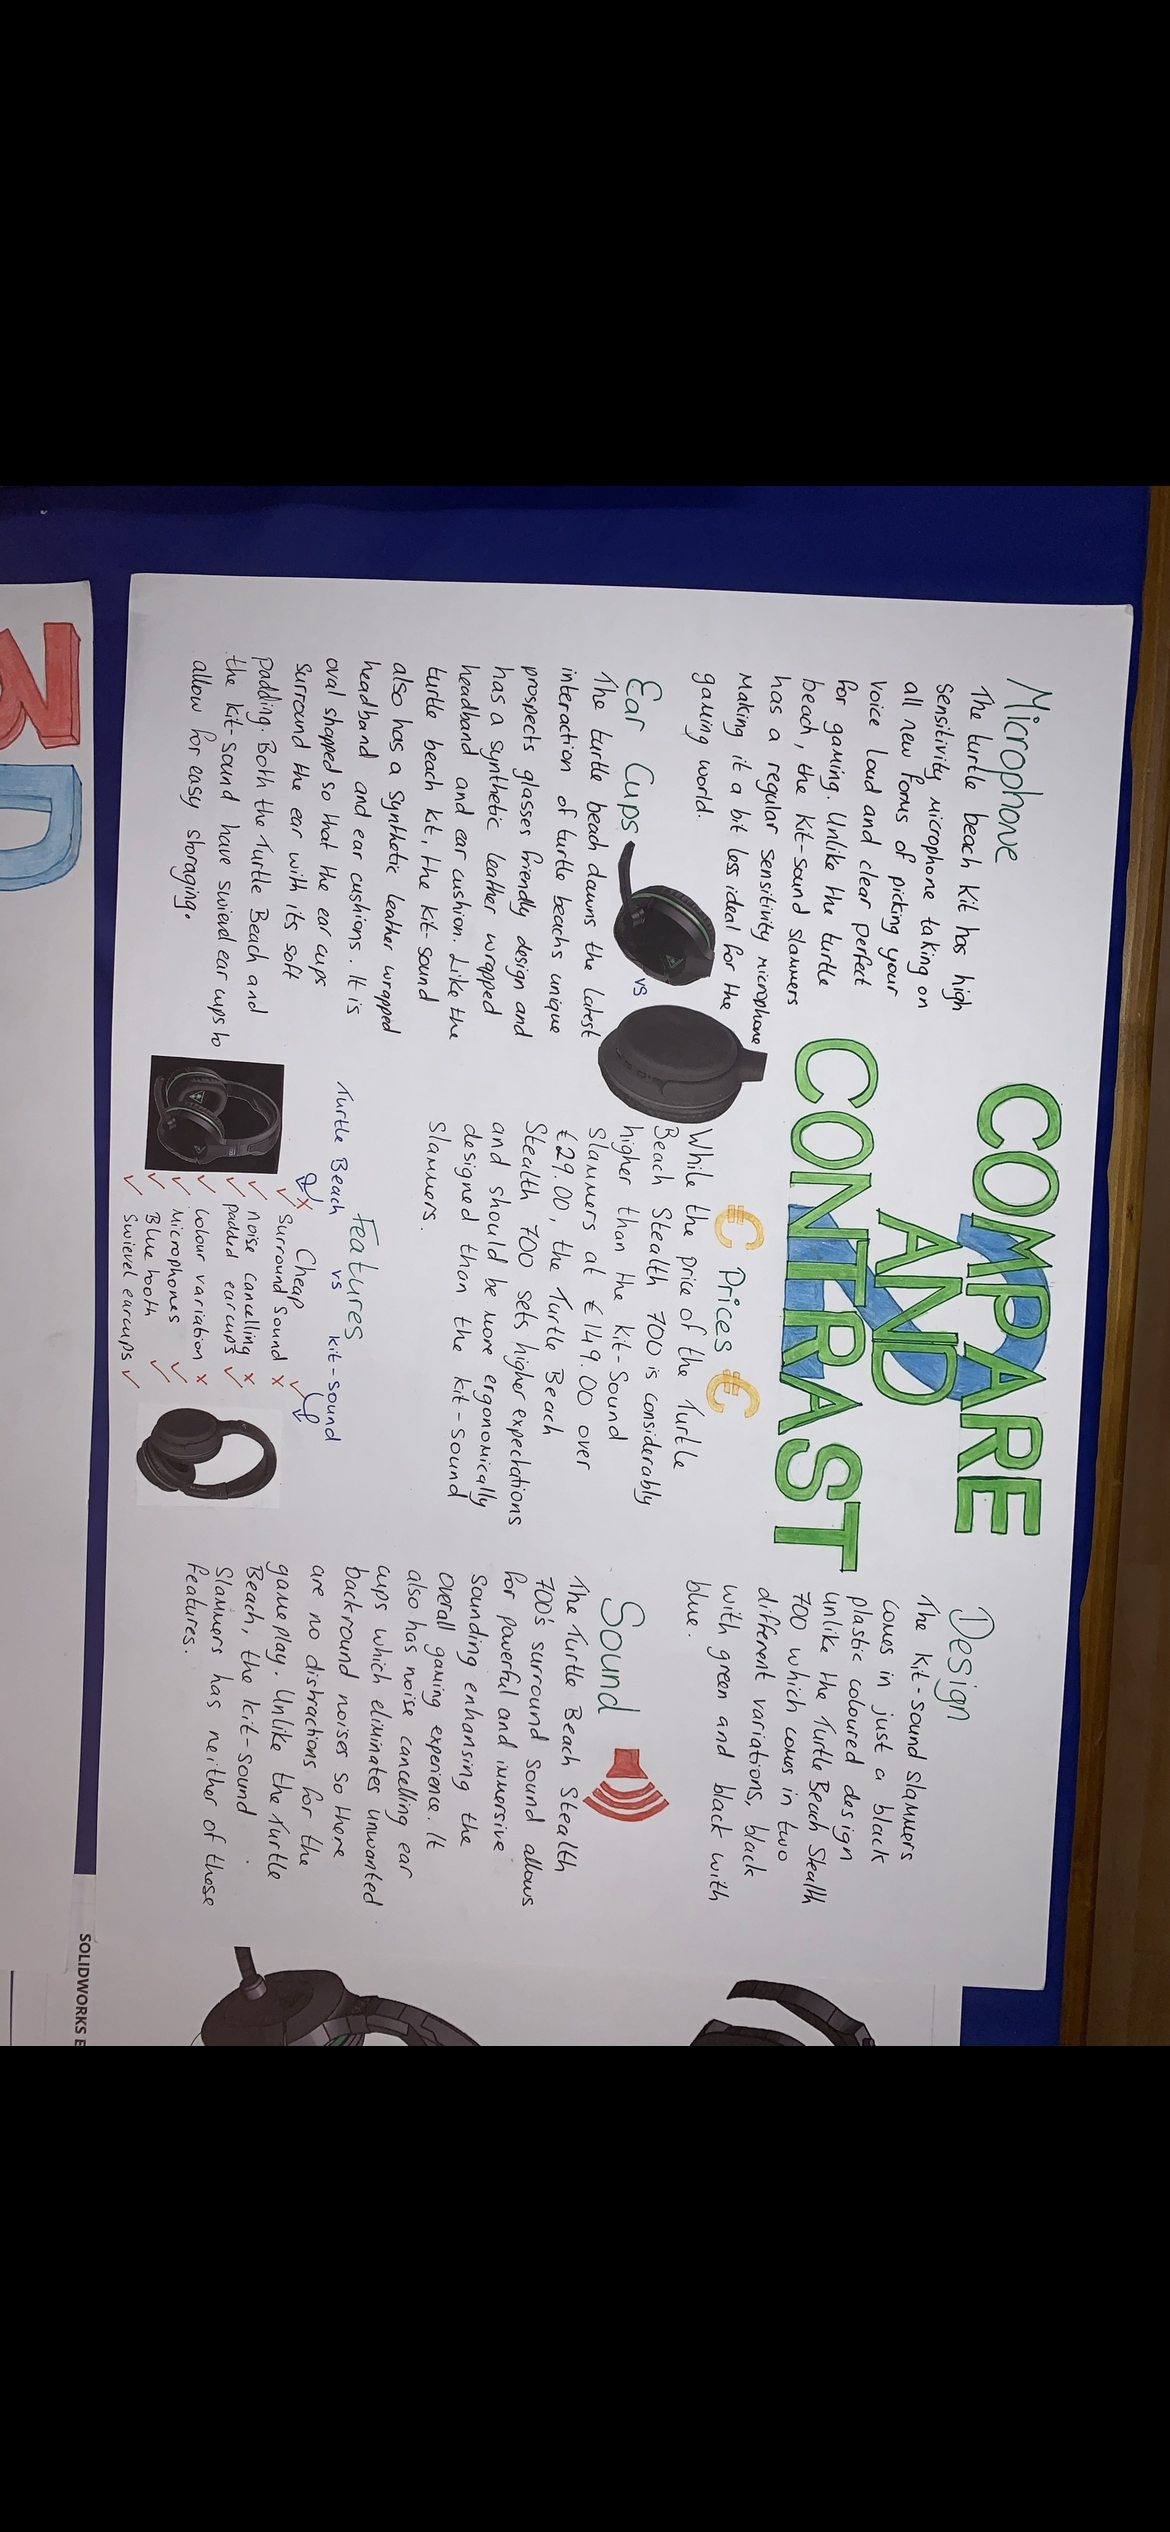 COMPARE
AND
CONTRAST
Microphone
The turtle beach kit has high
sensitivity microphone taking on
all new forms of picking your
voice loud and clear perfect
for gaming. Unlike the turtle
beach, the kit-sound slammers
has a regular sensitivity microphone
making it a bit less ideal for the
gaming world.
Ear Cups
VS
The turtle beach dawns the latest
interaction of turtle beachs unique
prospects glasses friendly design and
has a synthetic leather wrapped
headband and ear cushion. Like the
turtle beach kit, the kit-sound
also has a synthetic leather wrapped
headband and ear cushions. It is
oval shapped so that the ear cups
surround the ear with its soft
padding. Both the Turtle Beach and
the kit-sound have swievel ear cups to
allow for easy storaging.
€ Prices €
While the price of the Turtle
Beach Stealth 700 is considerably
higher than the kit-Sound
Slammers at €149.00 over
€29.00, the Turtle Beach
Stealth 700 sets higher expectations
and should be more ergonomically
designed than the kit-sound
Slammers.
Features
Turtle Beach vs kit-sound
x Cheap ✓
✓ Surround Sound x
✓ noise cancelling x
✓ padded earcups ✓
✓ colour variation x
✓ Microphones ✓
✓ Bluetooth ✓
✓ Swievel earcups ✓
Design
The kit-sound slammers
comes in just a black
plastic coloured design
unlike the Turtle Beach Stealth
700 which comes in two
different variations, black
with green and black with
blue.
Sound
The Turtle Beach Stealth
700's surround sound allows
for powerful and immersive
sounding enhansing the
overall gaming experience. It
also has noise cancelling ear
cups which eliminates unwanted
backround noises so there
are no distractions for the
gameplay. Unlike the Turtle
Beach, the kit-sound
Slammers has neither of these
features.
3D
SOLIDWORKS E